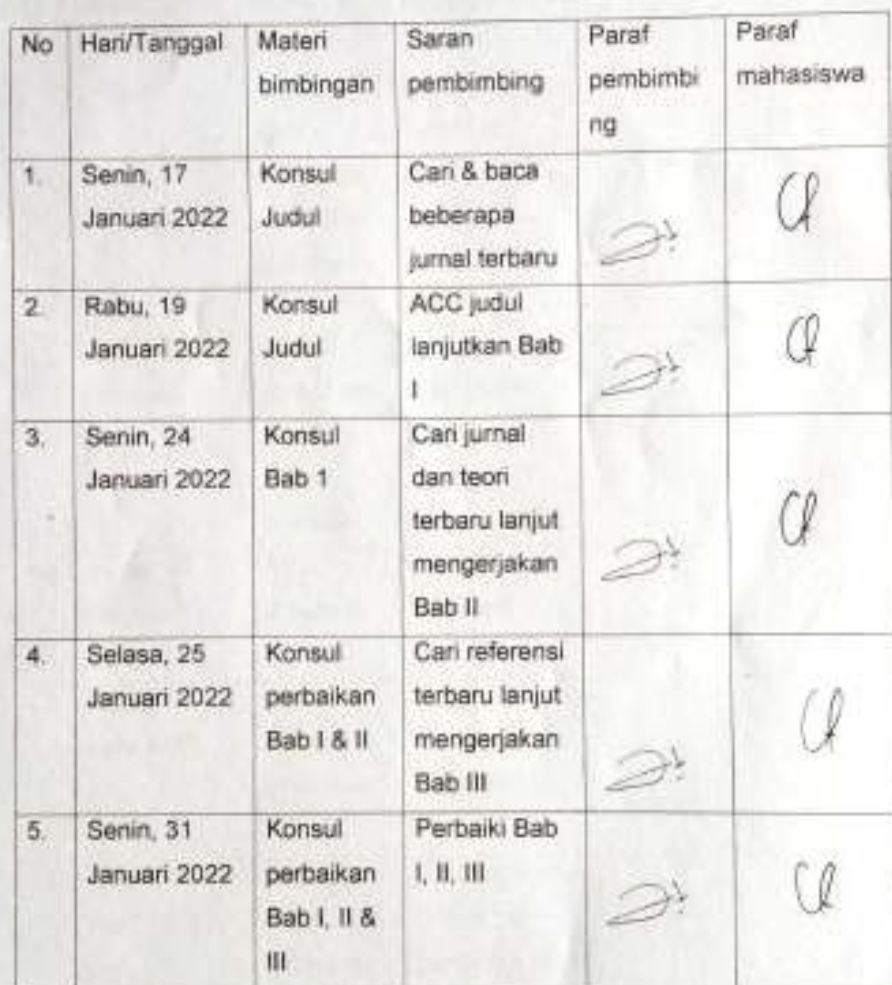 No Hari/Tanggal Materi bimbingan Saran pembimbing Paraf pembimbi ng Paraf mahasiswa
1. Senin, 17 Januari 2022 Konsul Judul Cari & baca beberapa jurnal terbaru
2. Rabu, 19 Januari 2022 Konsul Judul ACC judul lanjutkan Bab I
3. Senin, 24 Januari 2022 Konsul Bab 1 Cari jurnal dan teori terbaru lanjut mengerjakan Bab II
4. Selasa, 25 Januari 2022 Konsul perbaikan Bab I & II Cari referensi terbaru lanjut mengerjakan Bab III
5. Senin, 31 Januari 2022 Konsul perbaikan Bab I, II & III Perbaiki Bab I, II, III